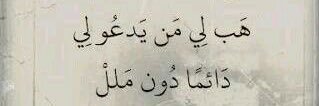 هَب لِي مَن يَدعُو لِي
دَائمًا دُون مَللْ